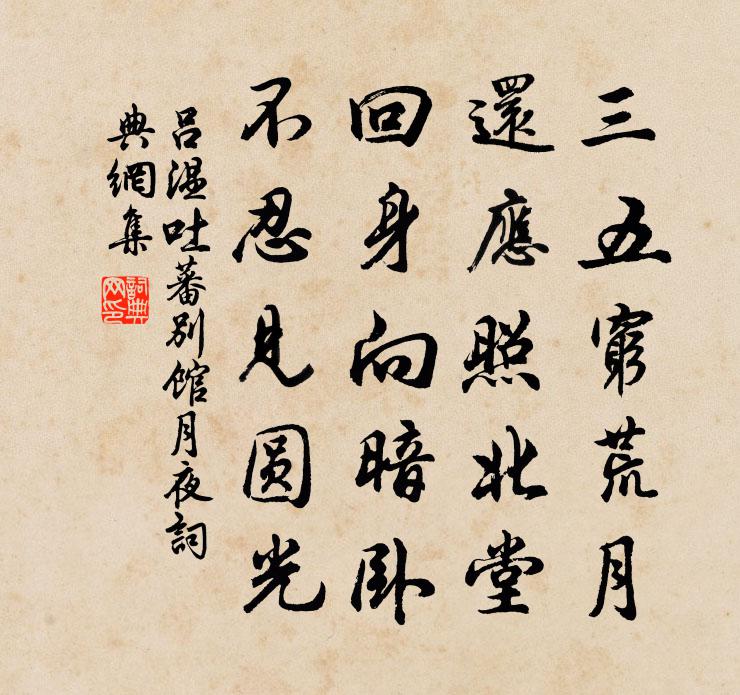 三五窮荒月
還應照北堂
回身向暗卧
不忍見圆光
吕温吐蕃别館月夜詞
典網集
詞典
网印